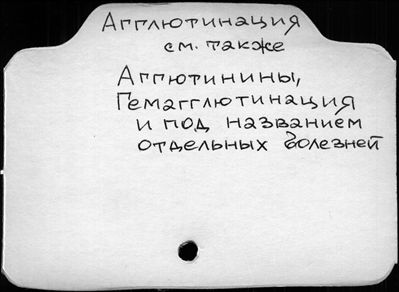 Агглютинация
см. также
Агглютинины,
Гемагглютинация
и под названием
отдельных болезней